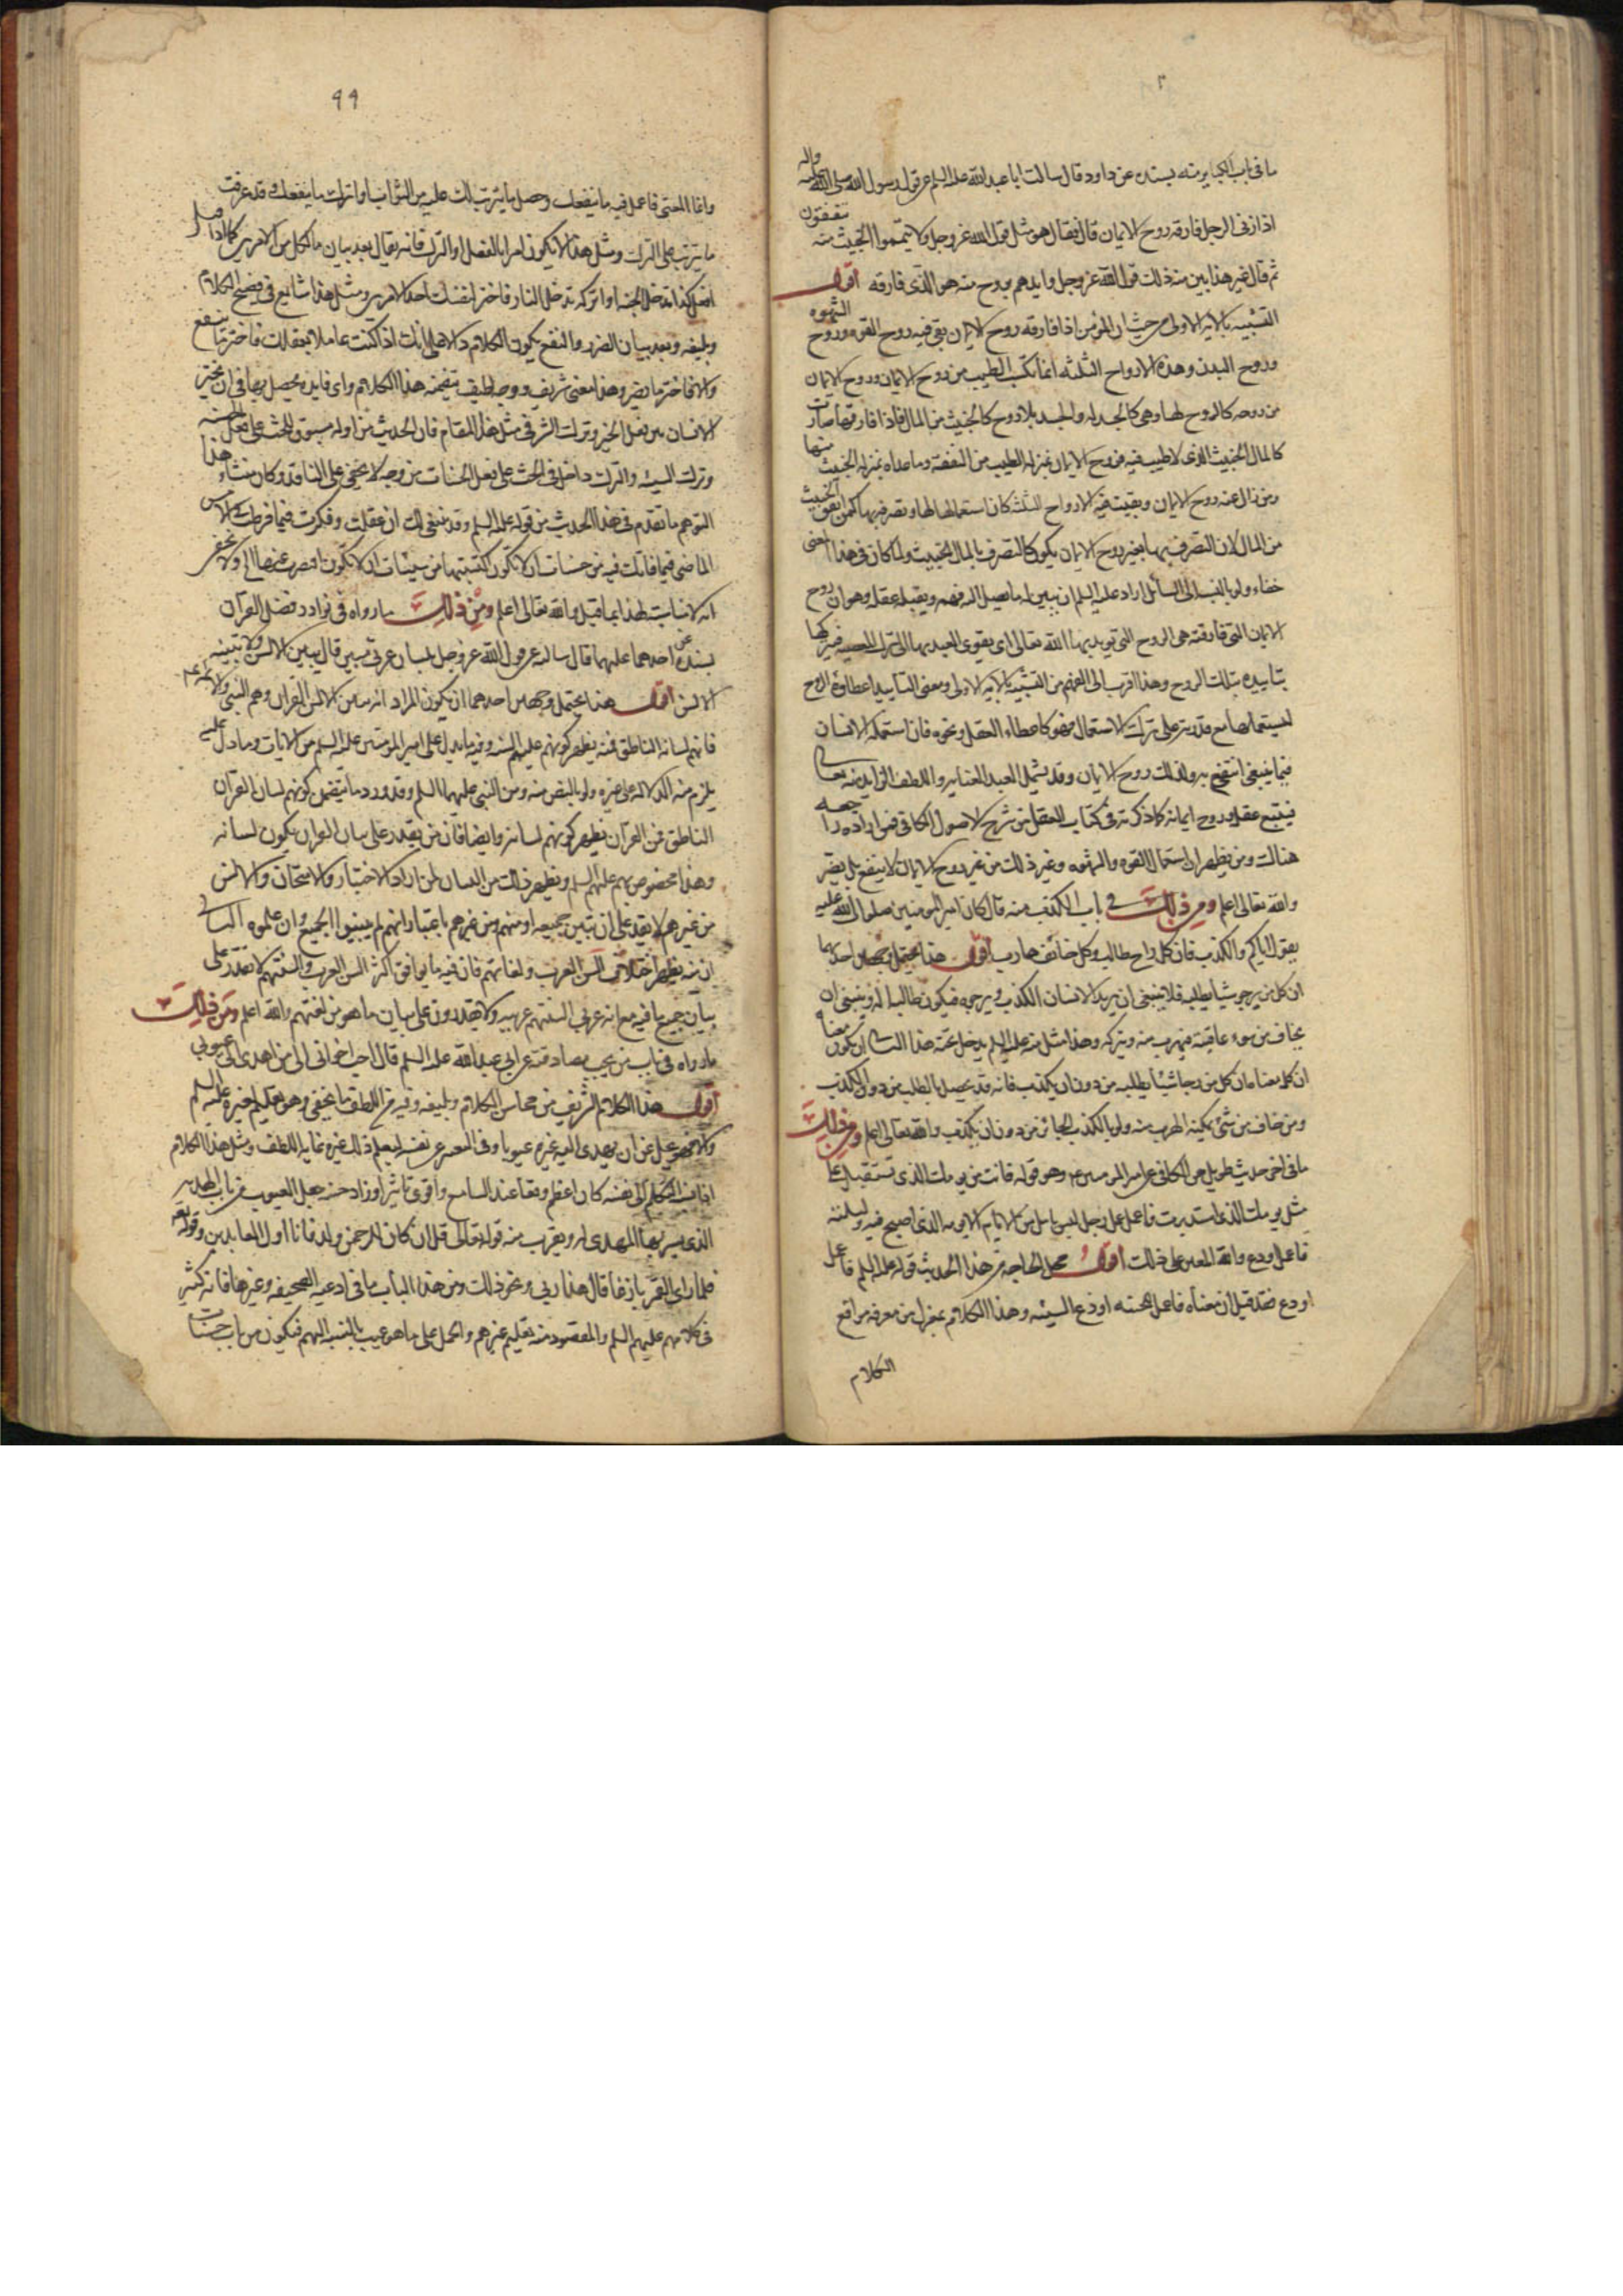 ما في باب الكباير منه بسنده عن داود قال سالت ابا عبد الله عليه السلم عن قول رسول الله صلى الله عليه واله
اذا زنى الرجل فارقه روح الايمان قال فقال هو مثل قول الله عز وجل ولا تيمموا الخبيث منه تنفقون
ثم قال غير هذا ابين منه ذلك قول الله عز وجل وايدهم بروح منه هو الذي فارقه اقول
التشبيه بالايه الاولى من حيث ان المؤمن اذا فارقه روح الايمان بقي فيه روح القوه وروح الشهوه
وروح البدن وهذه الارواح الثلثه انما تكسب الطيب من روح الايمان وروح الايمان
من روحه كالروح لها وهي كالجسد له والجسد بلا روح كالخبيث من المال فاذا فارقها صارت
كالمال الخبيث الذي لا طيب فيه فروح الايمان بمنزله الطيب من النفقة وما عداه بمنزله الخبيث منها
ومن زال عنه روح الايمان وبقيت فيه الارواح الثلث كان استعمالها لها وتصرفه بها كمن انفق الخبيث
من المال لان التصرف بها بغير روح الايمان يكون كالتصرف بالمال الخبيث ولما كان في هذا المعنى
خفاء ولو بالنسبه الى السائل اراد عليه السلم ان يبين له ما يصل اليه فهمه ويقبله عقله وهو ان روح
الايمان التي فارقته هي الروح التي يويد بها الله تعالى اي يقوى العبد بها الى ترك المعصيه فيتركها
بتاييده بتلك الروح وهذا اقرب الى الفهم من التشبيه بالايه الاولى ومعنى التاييد اعطاؤه الروح
ليستعملها مع قدرته على ترك الاستعمال فهو كاعطاء العقل ونحوه فان استعمله الانسان
فيما ينبغي انتفع به وكذلك روح الايمان وقد يشمل العبد العنايه واللطف الزايد منه تعالى
فيتبع عقله وروح ايمانه كما ذكرته في كتاب العقل من شرح الاصول الكافي فمن اراده راجعه
هناك ومن يظهر ان استعمال القوه والشهوه وغير ذلك من غير روح الايمان لا ينفع بل يضر
والله تعالى اعلم ومن ذلك في باب الكذب منه قال كان امير المومنين صلوات الله عليه
يقول اياكم والكذب فان كل راج طالب وكل خائف هارب اقول هذا يحتمل وجهين احدهما
ان كل من يرجو شيا يطلبه فلا ينبغي ان يريد الانسان الكذب ويرجوه فيكون طالبا له وينبغي ان
يخاف من سوء عاقبته فيهرب منه ويتركه وهذا مثل منه عليه السلم يدخل تحته هذا الثاني ان يكون معناه
ان كل من رجا شيئا يطلبه من دون ان يكذب فانه قد يحصل بالطلب من دون الكذب
ومن خاف من شئ يمكنه الهرب منه ولو بالكذب الجائز من دون ان يكذب والله تعالى اعلم ومن ذلك
ما في اخر حديث طويل من الكافي عن امير المومنين ع وهو قوله فانت من يومك الذي تستقبل على
مثل يومك الذي استدبرت فاعمل عمل رجل ليس يامل من الايام الا يومه الذي اصبح فيه وليلته
فاعمل او دع والله المعين على ذلك اقول محل الحاجه من هذا الحديث قوله عليه السلم فاعمل
او دع فقد قيل ان معناه فاعمل الحسنه او دع السيئه وهذا الكلام بمعزل من معرفه مواقع
الكلام
٩٩
وانما المعنى فاعمل فيه ما ينفعك وحصل ما يترتب لك عليه من الثواب او اترك ما ينفعك وقد عرفت
ما يترتب على الترك ومثل هذا لا يكون امرا بالفعل او الترك فانه يقال بعد بيان ما لكل من الامرين كما اذا قيل
افعل كذا تدخل الجنه او اتركه تدخل النار فاختر لنفسك احد الامرين ومثل هذا شايع في فصيح الكلام
وبليغه وبعد بيان الضرر والنفع يكون الكلام دالا على انك اذا كنت عاملا بعقلك فاختر ما ينفع
والا فاختر ما يضر وهذا معنى شريف ووجه لطيف يتضمنه هذا الكلام واي فايده يحصل بها في ان يخير
الانسان بين فعل الخير وترك الشر في مثل هذا المقام فان الحديث من اوله مسوق للحث على فعل الحسنه
وترك السيئه والترك داخل في الحث على فعل الحسنات من وجه لا يخفى على الناقد وكان منشاء هذا
التوهم ما تقدم في هذا الحديث من قوله عليه السلم وقد ينبغي لك ان عقلت وفكرت فيما فرطت في الامس
الماضي فيما فاتك فيه من حسنات ان لا تكون اكتسبتها ومن سيئات ان لا تكون اقصرت عنها الخ ولا يخفى
انه لا مناسبت لهذا بما قيل والله تعالى اعلم ومن ذلك ما رواه في نوادر فضل القرآن
بسنده عن احدهما عليهما قال سالته عن قول الله عز وجل بلسان عربي مبين قال يبين الالسن ولا تبينه
الالسن اقول هذا يحتمل وجهين احدهما ان يكون المراد انه يبين الالسن القران وهم النبي والائمه ع
فانهم لسانه الناطق فمنه يظهر كونهم عليهم السلم وفيه ما يدل على امير المومنين عليه السلم من الايات وما دل عليه
يلزم منه الدلاله على غيره ولو بالنص منه ومن النبي عليهما السلم وقد ورد ما يتضمن كونهم لسان القرآن
الناطق فمن القرآن يظهر كونهم لسانه وايضا فان من يقدر على بيان القران يكون لسانه
وهذا مخصوص بهم عليهم السلم ويظهر ذلك من اللسان لمن اراد الاختبار والامتحان والالسن
من غيرهم لا يقدر على ان تبين جميعه او منهم ومن غيرهم باعتبار انهم لم يبينوا الجميع وان علموه الثاني
ان منه يظهر اختلاف السن العرب ولغاتهم فان فيه ما يوافق اكثر السن العرب والسنتهم لا تقدر على
بيان جميع ما فيه مع انه عربي السنتهم عربيه ولا يقدرون على بيان ما هو من لغتهم والله اعلم ومن ذلك
ما رواه في باب من يجب مصادقته عن ابي عبد الله عليه السلم قال احب اخواني الى من اهدى الى عيوبي
اقول هذا الكلام الشريف من محاسن الكلام وبليغه وفيه من اللطف ما لا يخفى وهو تعليم لغيره عليه السلم
والا فهو يجل عن ان يهدى اليه غيره عيوبا وفي التعبير عن نفسه ليعلم ذلك غيره غايه اللطف ومثل هذا الكلام
اذا اضافه المتكلم الى نفسه كان اعظم وقعا عند السامع واقوى تاثيرا وزاد حسنه جعل العيوب من باب الهديه
الذي يسر بها المهدى له ويقرب منه قوله تعالى قل ان كان للرحمن ولد فانا اول العابدين وقوله تعالى
فلما راى القمر بازغا قال هذا ربي ونحو ذلك ومن هذا الباب ما في ادعيه الصحيفه وغيرها فانه كثير
في كلامهم عليهم السلم والمقصود منه تعليم غيرهم والحمل على ما هو عيب بالنسبه اليهم فيكون من باب حسنات